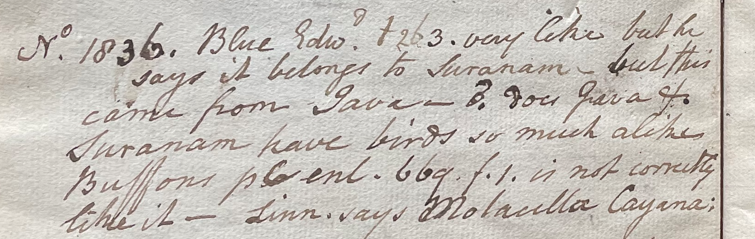 No. 1836. Blue Edwd. t263. very like but he
says it belongs to Suranam - but this
came from Java - Q. does Java &
Suranam have birds so much alike
Buffons pl enl. 669. f. 1. is not correctly
like it - Linn. says Motacilla Cayana: